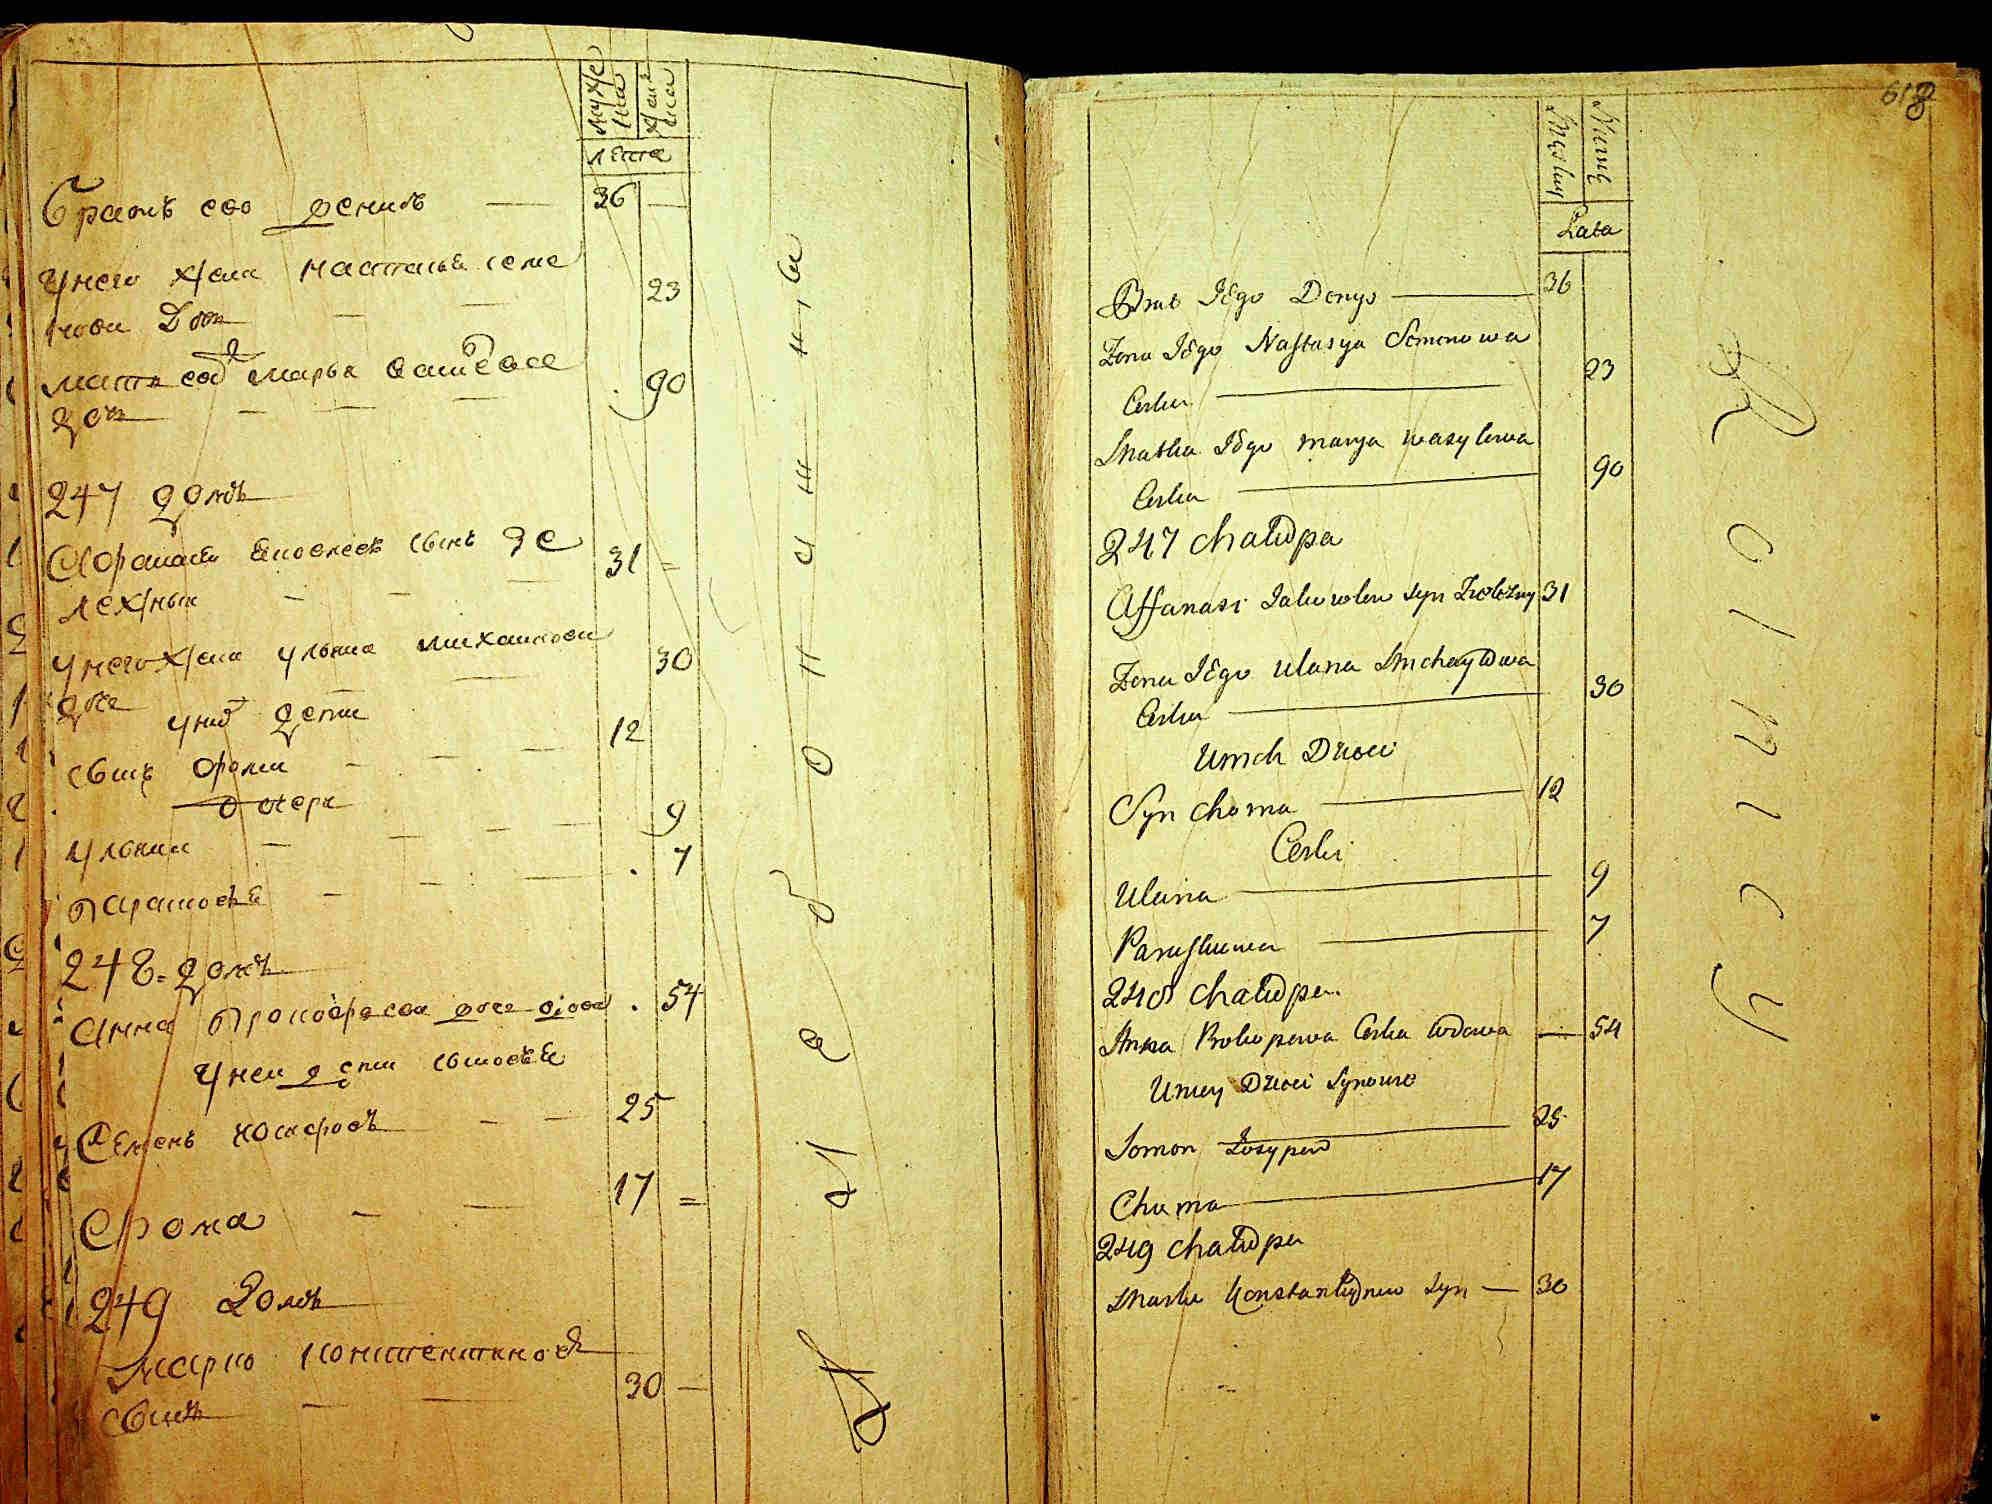 мужеска
женска
лета
Братъ его Денисъ 36
У него жена Настасья Семе
нова Доч 23
Мать его Марья Василева
доч 90
247 домъ
Афанасей Яковлевъ сынъ Же
лежныи 31
У него жена Ульяна Михаилова
доч 30
У них дети
сынъ Фома 12
дочери
Ульяна 9
Парасковья 7
248 домъ
Анна Прокофьева доч вдова 54
У неи дети сыновья
Семенъ Иосифовъ 25
Фома 17
249 домъ
Марко Констентинов
сынъ 30
хлебопашцы
618
Męskiy
Niewię
Lata
Brat Jego Denys 36
Żona Jego Nastasya Semenowa
Corka 23
Matka Jego Marya Wasylewa
Corka 90
247 Chałupa
Affanasi Jakowlew syn Żeleżny 31
Żona Jego Ulana Michayłowa
Corka 30
U nich Dzieci
Syn Choma 12
Corki
Ulana 9
Paraskiewia 7
248 Chałupa
Anna Prokopowa Corka wdowa 54
U niey Dzieci Synowie
Somon Josypow 25
Choma 17
249 Chałupa
Marko Konstantynow syn 30
Rolnicy